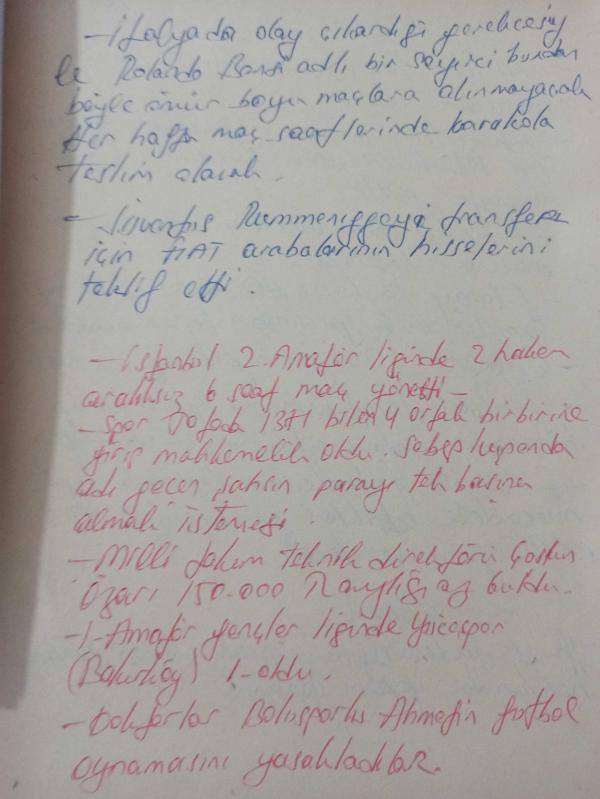 - İtalyada olay çıkardığı gerekcesiy
le Rolando Bansi adlı bir seyirci bundan
böyle ömür boyu maçlara alınmayacak
Her hafta maç saatlerinde karakola
teslim olacak.
- Juventus Rummeniggeyi transfer
için FIAT arabalarının hisselerini
teklif etti.
- İstanbul 2. Amatör liginde 2 hakem
aralıksız 6 saat maç yönetti -
- Spor Totoda 13+1 bilen 4 ortak birbirine
girip mahkemelik oldu. Sebep kuponda
adı geçen şahsın parayı tek başına
almak istemesi.
- Milli takım teknik direktörü Çoşkun
Özarı 150.000 TL aylığı az buldu.
- 1. Amatör gençler liginde
(Bakırköy) 1. oldu.
- Doktorlar Bolusporlu Ahmetin futbol
oynamasını yasakladılar.